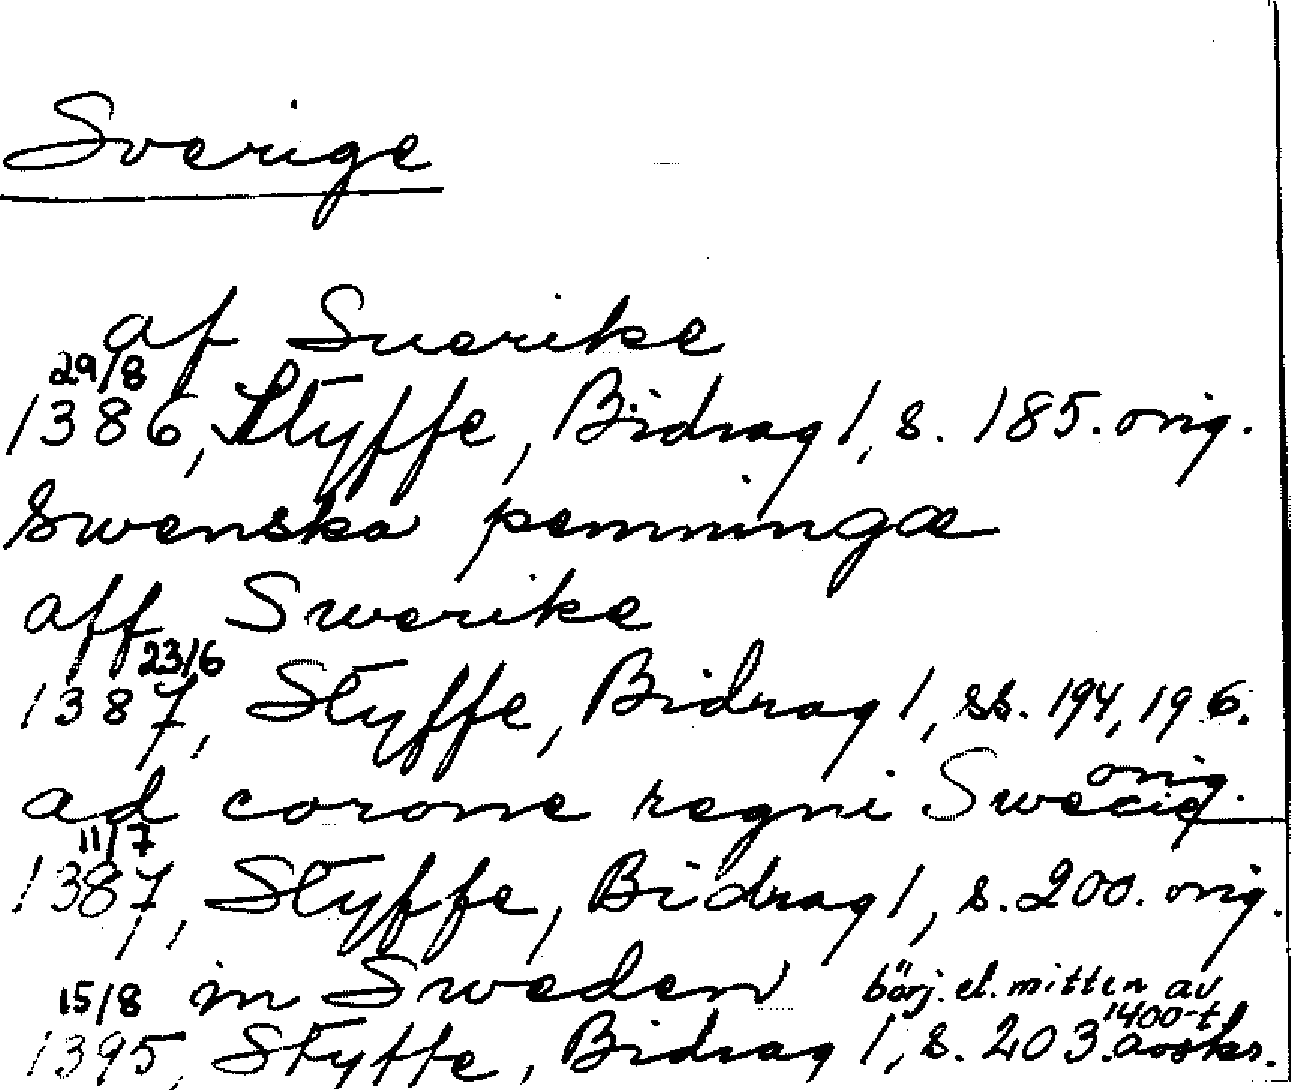 Sverige
af Suerike
29/8
1386, Styffe, Bidrag 1, s. 185. orig.
Swenska penningæ
aff Swerike
23/6
1387, Styffe, Bidrag 1, ss. 194, 196.
orig.
ad corone regni Swecie
11/7
1387, Styffe, Bidrag 1, s. 200. orig.
in Sweden börj. el. mitten av
15/8 1400-t
1395, Styffe, Bidrag 1, s. 203.